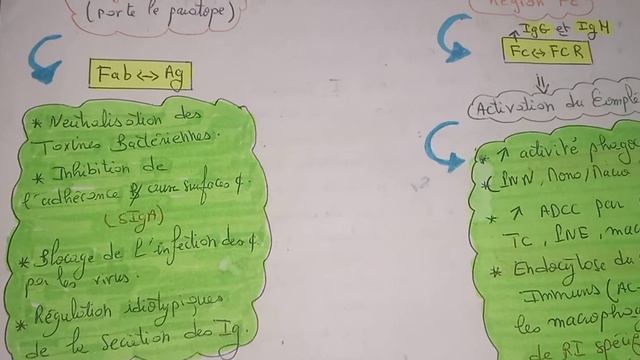 (porte le paratope)
Fab ↔ Ag
* Neutralisation des
Toxines Bactériennes.
* Inhibition de
l'adhérence aux surfaces ¢.
(SIgA)
* Blocage de l'infection des ¢
par les virus.
* Régulation idiotypiques
de la sécrétion des Ig.
Région Fc
IgG et IgM
Fc ↔ FCR
Activation du Complé
* ↑ activité phagoc
* (PNN, Mono/Macro
* ↑ ADCC par
TC, PNE, mac
* Endocytose du
Immuns (AC-
les macropha
de RI spécif